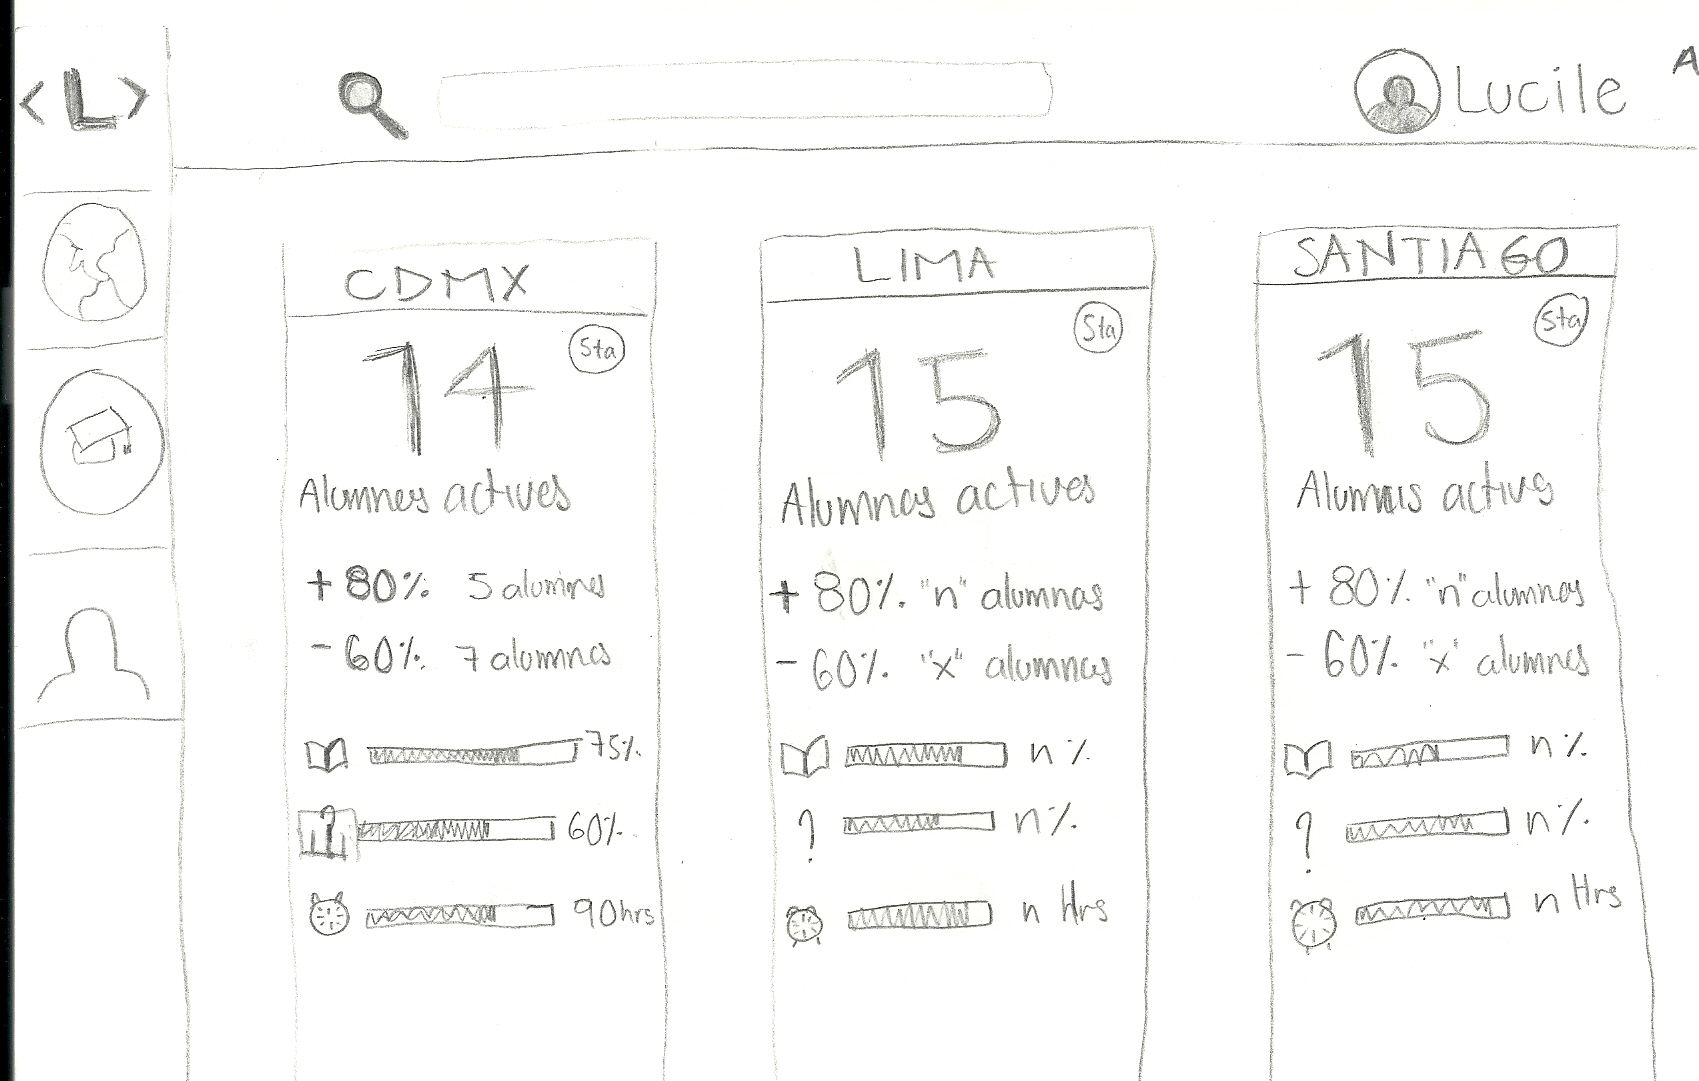 <L>
Lucile
A
CDMX
Sta
14
Alumnes actives
+ 80% 5 alumnes
- 60% 7 alumnes
75%
?
60%
90hrs
LIMA
Sta
15
Alumnas actives
+ 80% "n" alumnas
- 60% "x" alumnas
n %
?
n%
n Hrs
SANTIAGO
Sta
15
+ 80% "n" alumnas
- 60% "x" alumnes
n %
?
n %
n Hrs